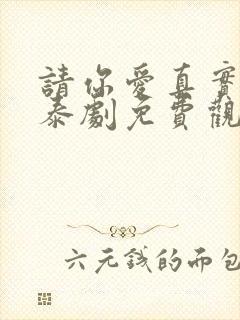 請你愛真實
泰劇免費觀
六元錢的面包